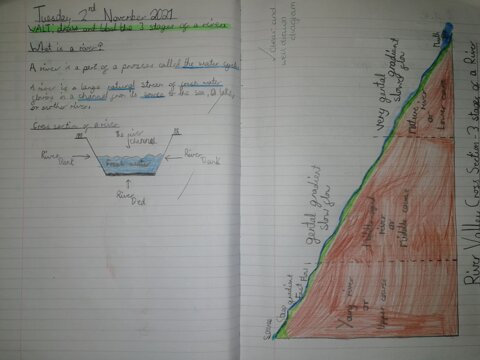 Tuesday 2nd November 2021
WALT: draw and label the 3 stages of a river
What is a river?
A river is a part of a process called the water cycle
A river is a large natural stream of fresh water
flowing in a channel from the source to the sea, a lake,
or another river.
Cross section of a river
The river
channel
River
Bank
fresh water
River
Bank
River
Bed
clear and
well drawn
diagram
River Valley Cross Section - 3 stages of a River
Mouth
very gental gradient
slowly flow
mature
river
or
Lower course
gental gradient
slow flow
river
or
middle course
gradient
Fast flow
Yang river
or
Upper course